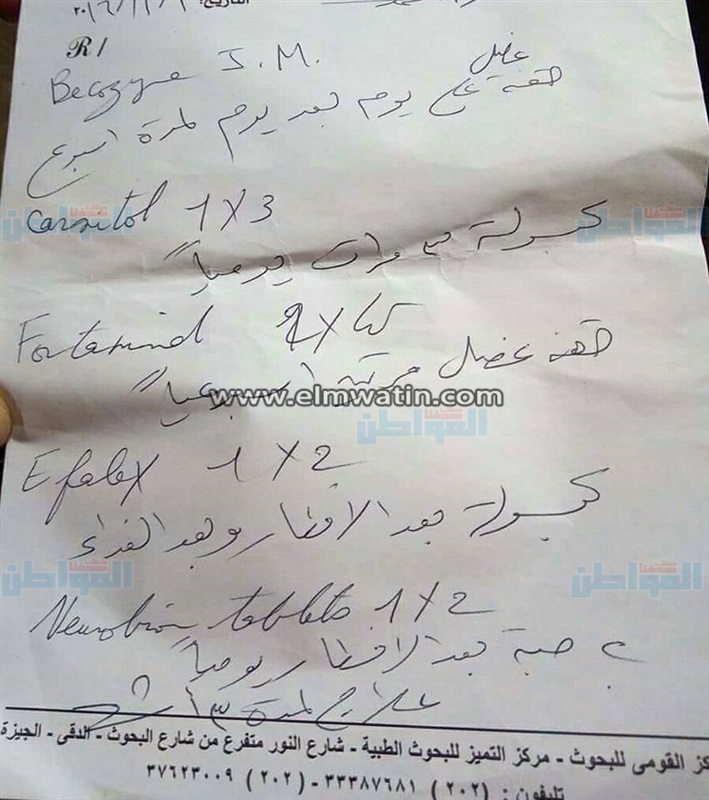 التاريخ: ٢٠١٦/١٢/١
R/
Becozyme I.M.
حقنة عضل يوم بعد يوم لمدة اسبوع
carnitol 1 X 3
كبسولة ٣ مرات يومياً
حقنة عضل مرتين اسبوعياً
www.elmwatin.com
المواطن
Efalex 1 X 2
كبسولة بعد الافطار وبعد الغداء
Neurobion tablets 1 X 2
حبة بعد الافطار يومياً
علاج لمدة ٣ أشهر
كز القومى للبحوث - مركز التميز للبحوث الطبية - شارع النور متفرع من شارع البحوث - الدقى - الجيزة
تليفون : (٢٠٢) ٣٣٣٨٧٦٨١ - (٢٠٢) ٣٧٦٢٣٠٠٩